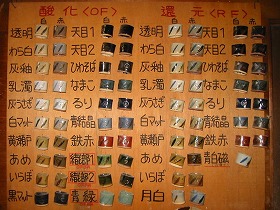 酸化〈OF〉 還元〈RF〉
白 赤 白 赤 白 赤 白 赤
透明 天目1 透明 天目1
わら白 天目2 わら白 天目2
灰釉 ひわそば 灰釉 ひわそば
乳濁 なまこ 乳濁 なまこ
灰うさぎ るり 灰うさぎ るり
白マット 青結晶 白マット 青結晶
黄瀬戸 鉄赤 黄瀬戸 鉄赤
あめ 織部1 あめ 青白磁
いらぼ 織部2 いらぼ
黒マット 青緑 月白